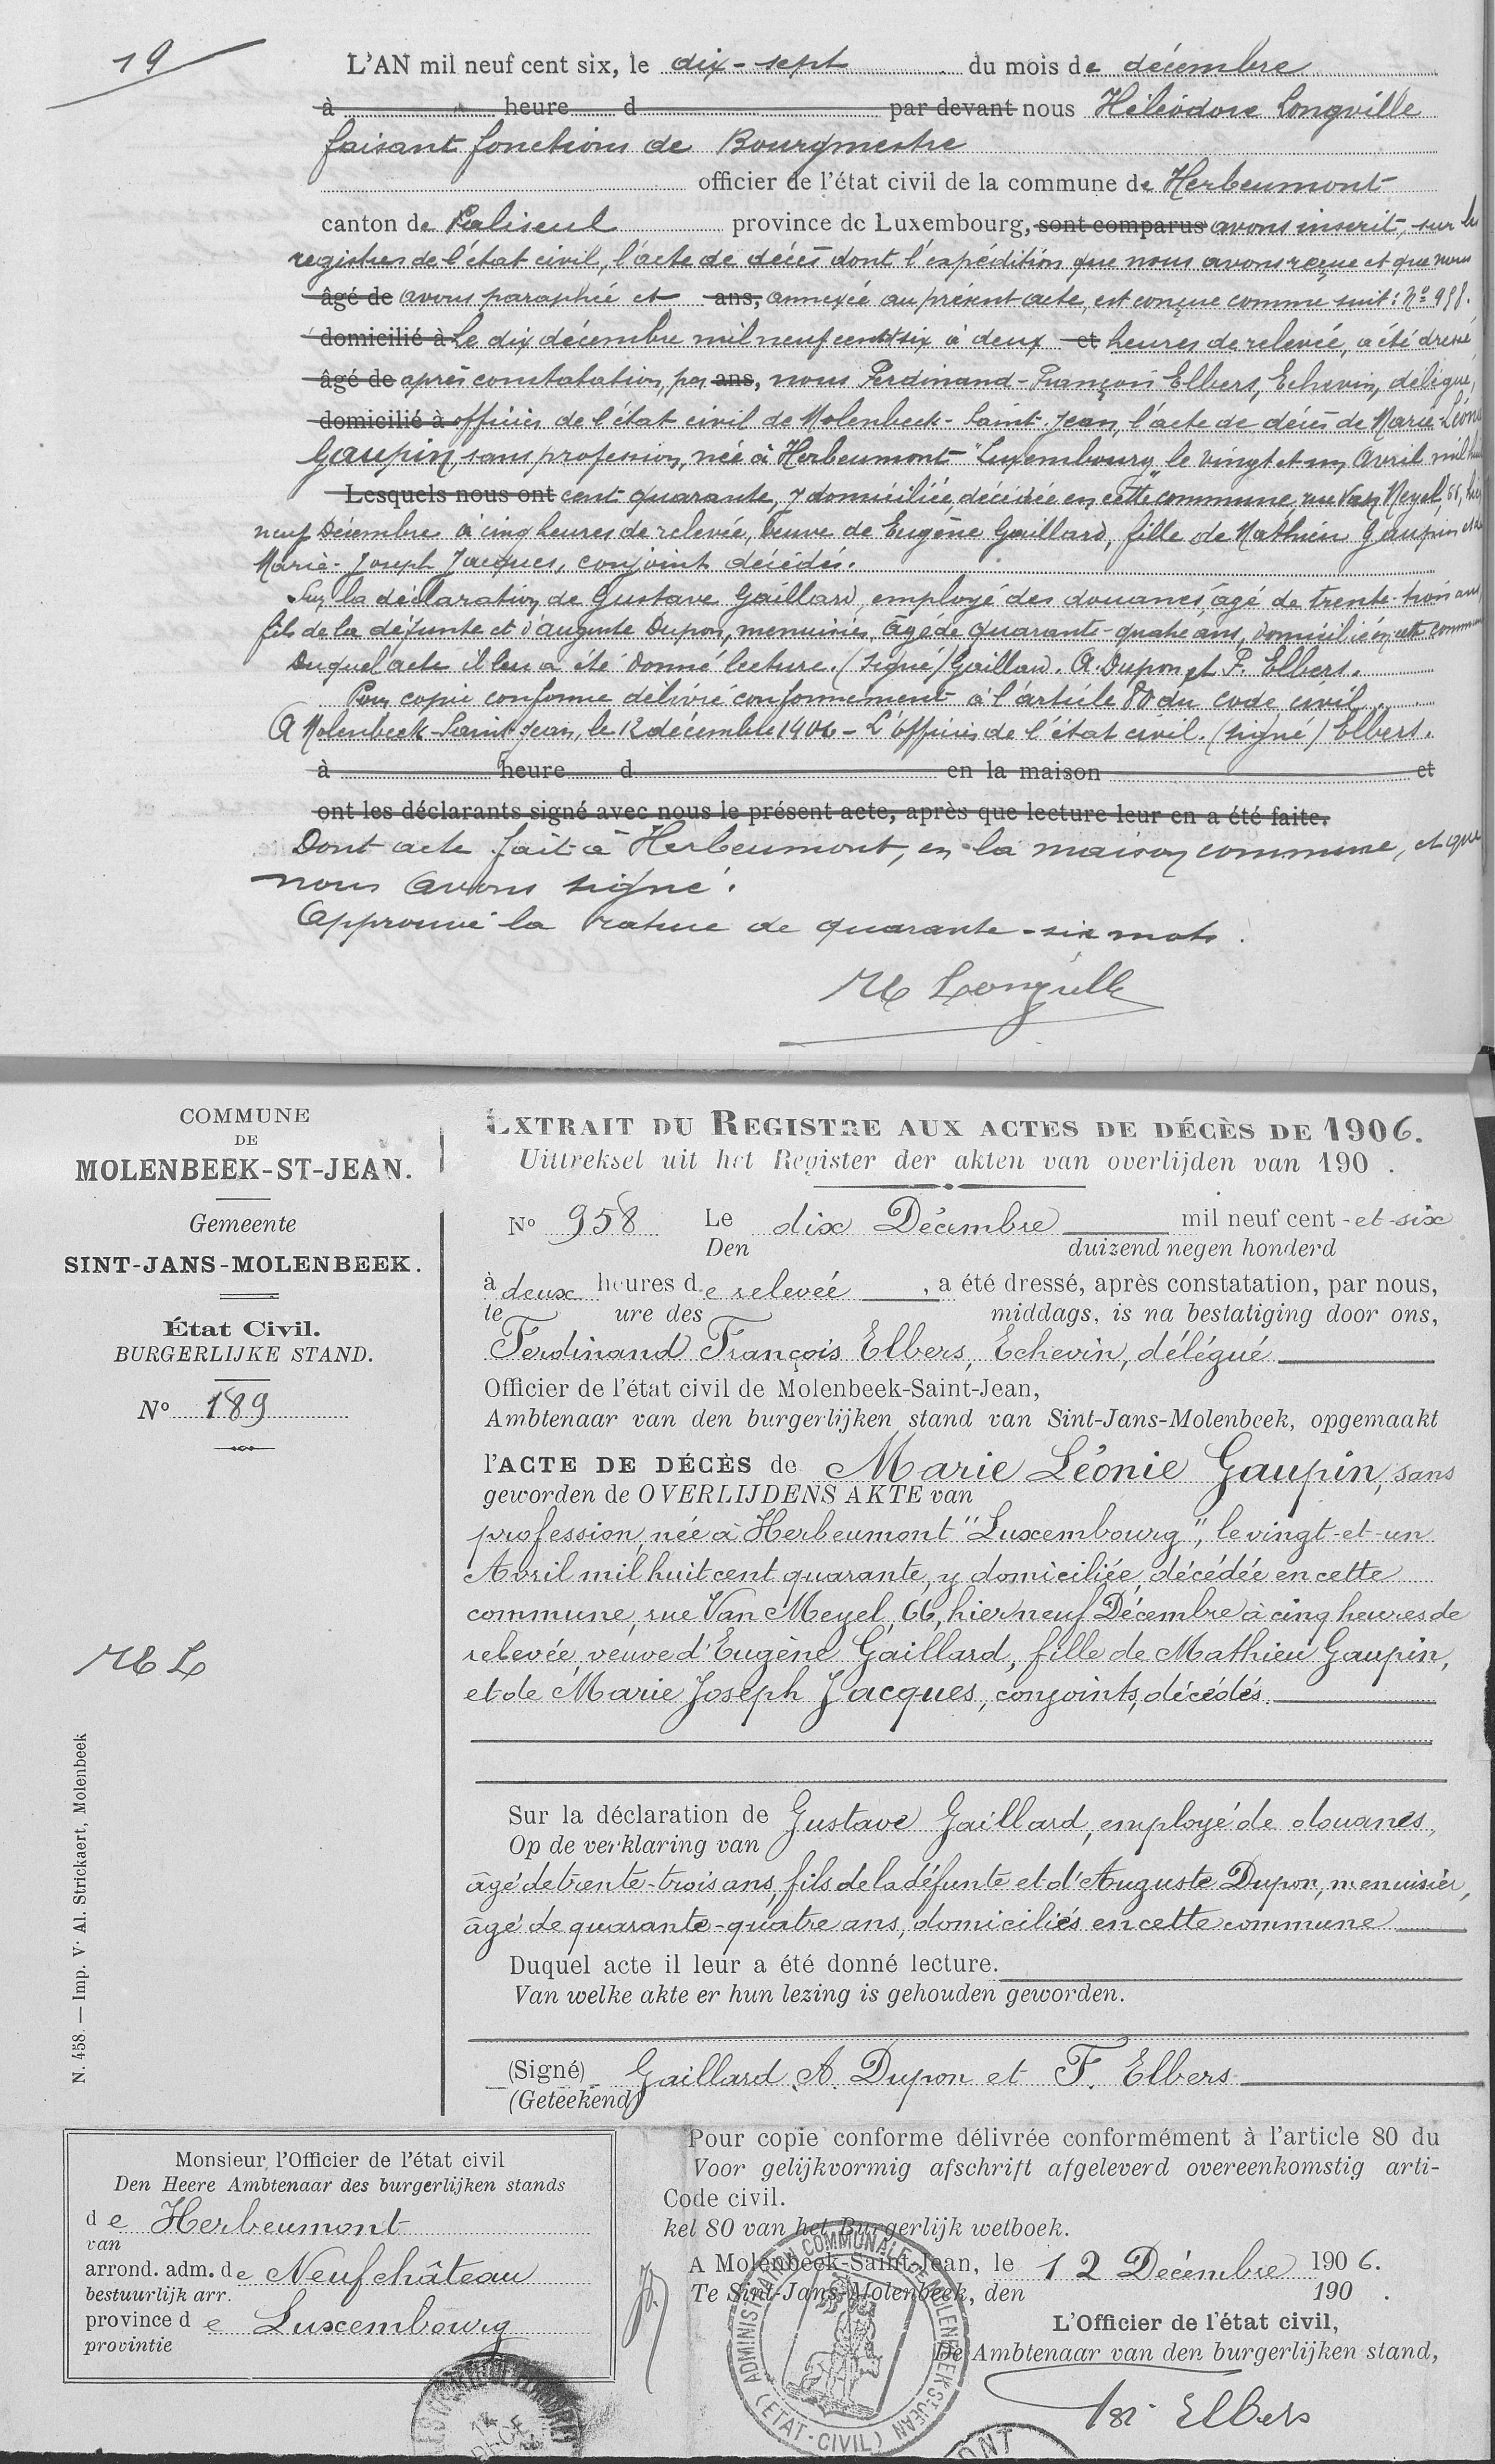 19
L'AN mil neuf cent six, le dix-sept du mois de décembre
à heure d par devant nous Héliodore Longville
faisant fonctions de Bourgmestre
officier de l'état civil de la commune de Herbeumont
canton de Paliseul province de Luxembourg, sont comparus avons inscrit, sur les
registres de l'état civil, l'acte de décès dont l'expédition que nous avons reçue et que nous
âgé de avons paraphée et ans, annexée au présent acte, est conçue comme suit: No 958.
domicilié à Le dix décembre mil neuf cent six à deux et heures de relevée, a été dressé
âgé de après constatation, par ans, nous Ferdinand-François Elbers, Echevin, délégué,
domicilié à officier de l'état civil de Molenbeek-Saint-Jean, l'acte de décès de Marie-Léonie
Gaupin, sans profession, née à Herbeumont "Luxembourg" le vingt et un Avril mil huit
Lesquels nous ont cent quarante, y domiciliée, décédée en cette commune, rue Van Meyel, 66, hier
neuf Décembre à cinq heures de relevée, Veuve de Eugène Gaillard, fille de Mathieu Gaupin et de
Marie-Joseph Jacques, conjoints décédés.
Sur la déclaration de Gustave Gaillard, employé des douanes âgé de trente-trois ans,
fils de la défunte et d'auguste Dupon, menuisier, âgé de quarante-quatre ans, domiciliés en cette commune
Duquel acte il leur a été donné lecture. (Signé) Gaillard. A. Dupon et F. Elbers.
Pour copie conforme délivrée conformément à l'article 80 du code civil
A Molenbeek-Saint-Jean, le 12 décembre 1906 - L'officier de l'état civil. (signé) Elbers.
à heure d en la maison et
ont les déclarants signé avec nous le présent acte, après que lecture leur en a été faite.
Dont acte fait à Herbeumont, en la maison commune, et que
nous avons signé.
Approuvé la rature de quarante-six mots.
H Longville
COMMUNE
DE
MOLENBEEK-ST-JEAN.
Gemeente
SINT-JANS-MOLENBEEK.
État Civil.
BURGERLIJKE STAND.
No 189
H L
N. 458. — Imp. Ve Al. Strickaert, Molenbeek
EXTRAIT DU REGISTRE AUX ACTES DE DÉCÈS DE 1906.
Uittreksel uit het Register der akten van overlijden van 190 .
No 958 Le dix Décembre mil neuf cent-et-six
Den duizend negen honderd
à deux heures de relevée, a été dressé, après constatation, par nous,
te ure des middags, is na bestatiging door ons,
Ferdinand François Elbers, Echevin, délégué
Officier de l'état civil de Molenbeek-Saint-Jean,
Ambtenaar van den burgerlijken stand van Sint-Jans-Molenbeek, opgemaakt
l'ACTE DE DÉCÈS de Marie Léonie Gaupin, sans
geworden de OVERLIJDENS AKTE van
profession, née à Herbeumont "Luxembourg", le vingt-et-un
Avril mil huit cent quarante, y domiciliée, décédée en cette
commune, rue Van Meyel, 66, hier neuf Décembre à cinq heures de
relevée, veuve d'Eugène Gaillard, fille de Mathieu Gaupin,
et de Marie Joseph Jacques, conjoints, décédés.
Sur la déclaration de Gustave Gaillard, employé de douanes,
Op de verklaring van
âgé de trente-trois ans, fils de la défunte et d'Auguste Dupon, menuisier,
âgé de quarante-quatre ans, domiciliés en cette commune
Duquel acte il leur a été donné lecture.
Van welke akte er hun lezing is gehouden geworden.
(Signé) Gaillard, A. Dupon et F. Elbers
(Geteekend)
Monsieur l'Officier de l'état civil
Den Heere Ambtenaar des burgerlijken stands
de Herbeumont
van
arrond. adm. de Neufchâteau
bestuurlijk arr.
province de Luxembourg
provintie
Pour copie conforme délivrée conformément à l'article 80 du
Voor gelijkvormig afschrift afgeleverd overeenkomstig arti-
Code civil.
kel 80 van het Burgerlijk wetboek.
A Molenbeek-Saint-Jean, le 12 Décembre 1906.
Te Sint-Jans-Molenbeek, den 190 .
L'Officier de l'état civil,
De Ambtenaar van den burgerlijken stand,
Elbers
ADMINISTRATION COMMUNALE DE MOLENBEEK-ST-JEAN
(ETAT-CIVIL)
14
DEC
ONT